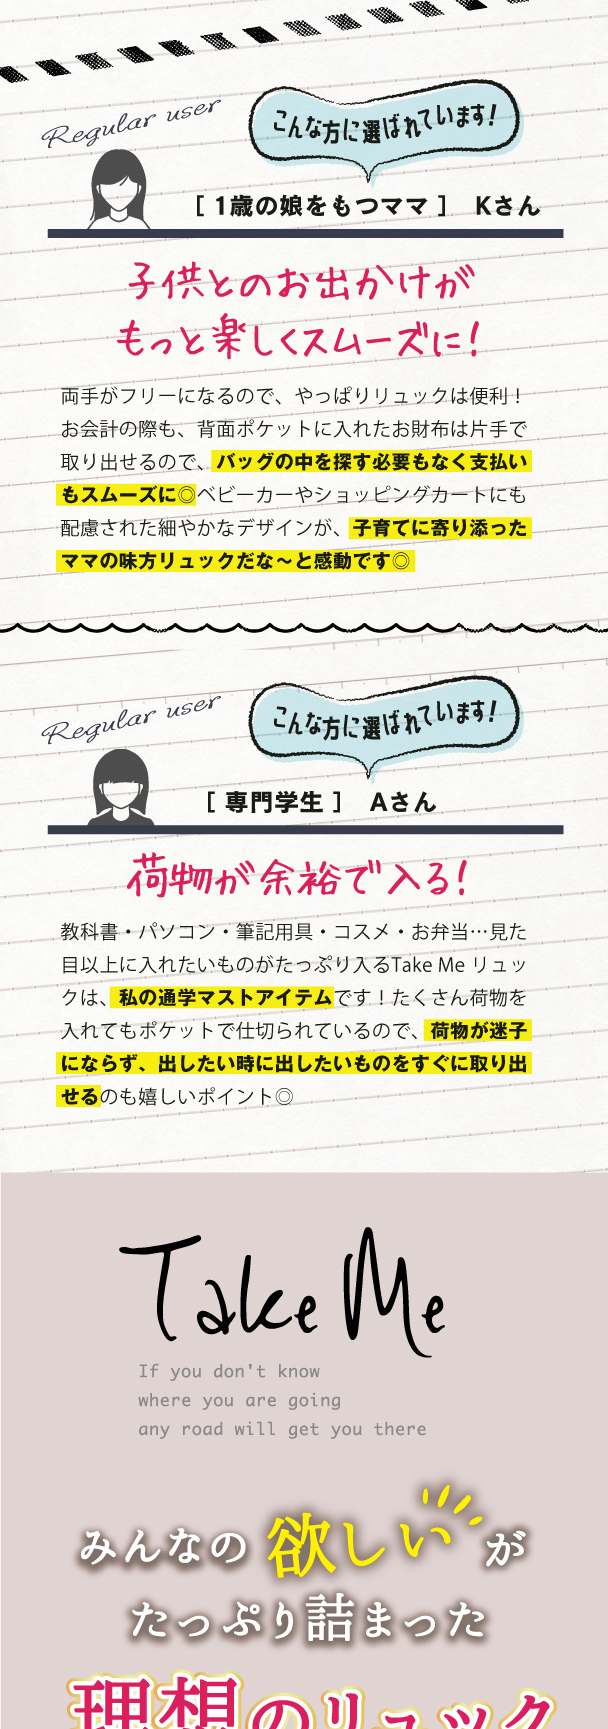 Regular user
こんな方に選ばれています！
［ 1歳の娘をもつママ ］ Kさん
子供とのお出かけが
もっと楽しくスムーズに！
両手がフリーになるので、やっぱりリュックは便利！
お会計の際も、背面ポケットに入れたお財布は片手で
取り出せるので、バッグの中を探す必要もなく支払い
もスムーズに◎ベビーカーやショッピングカートにも
配慮された細やかなデザインが、子育てに寄り添った
ママの味方リュックだな～と感動です◎
Regular user
こんな方に選ばれています！
［ 専門学生 ］ Aさん
荷物が余裕で入る！
教科書・パソコン・筆記用具・コスメ・お弁当…見た
目以上に入れたいものがたっぷり入るTake Me リュッ
クは、私の通学マストアイテムです！たくさん荷物を
入れてもポケットで仕切られているので、荷物が迷子
にならず、出したい時に出したいものをすぐに取り出
せるのも嬉しいポイント◎
Take Me
If you don't know
where you are going
any road will get you there
みんなの欲しいが
たっぷり詰まった
理想のリュック